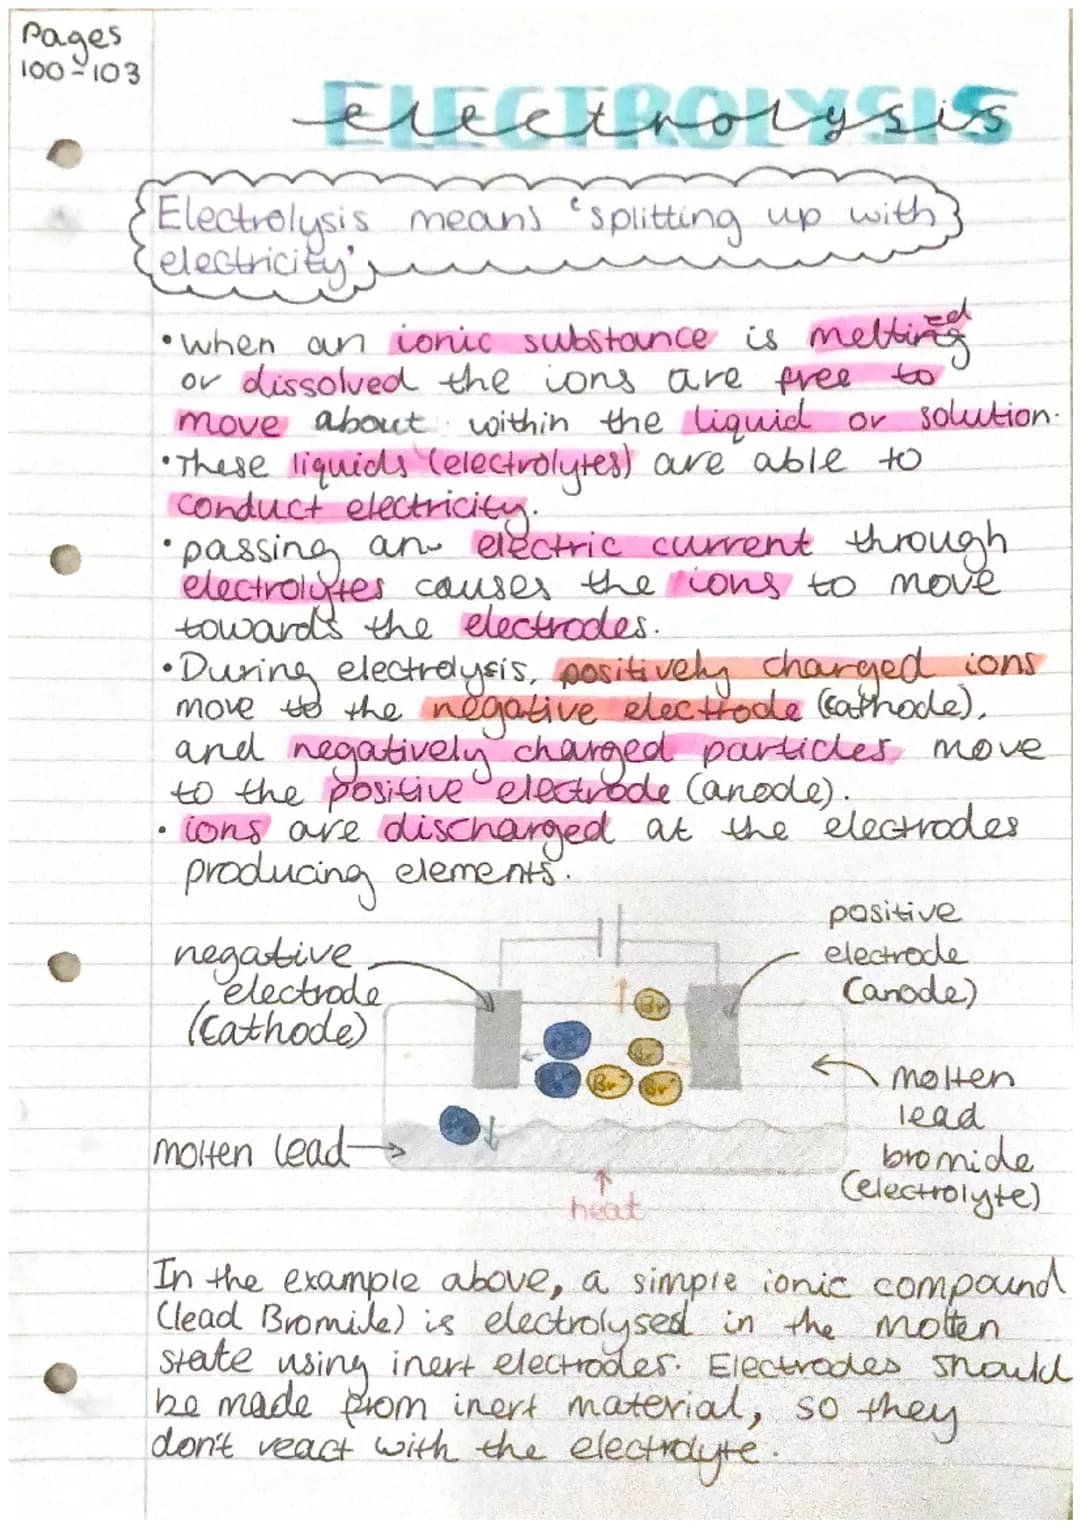 Pages
100-103
ELECTROLYSIS
electrolysis
Electrolysis means 'splitting up with
electricity'
•when an ionic substance is melted
or dissolved the ions are free to
move about within the liquid or solution.
•These liquids (electrolytes) are able to
conduct electricity.
•passing an electric current through
electrolytes causes the ions to move
towards the electrodes.
•During electrolysis, positively charged ions
move to the negative electrode (cathode),
and negatively charged particles move
to the positive electrode (anode).
• ions are discharged at the electrodes
producing elements.
negative
electrode
(Cathode)
positive
electrode
(anode)
Br
Br
Br
Br
molten
lead
bromide
(electrolyte)
molten lead
heat
In the example above, a simple ionic compound
(lead Bromide) is electrolysed in the molten
state using inert electrodes. Electrodes should
be made from inert material, so they
don't react with the electrolyte.